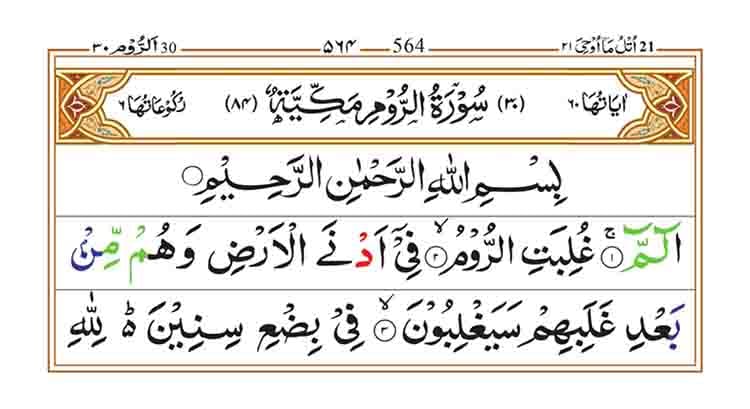 اَلرُّوْم ٣٠ 30 ٥٦٤ 564 اُتْلُ مَا اُوْحِیَ ٢١ 21
اٰیَاتُهَا ٦٠ (٣٠) سُوْرَةُ الرُّوْمِ مَكِّیَّةٌ (٨٤) رُكُوْعَاتُهَا ٦
بِسْمِ اللّٰهِ الرَّحْمٰنِ الرَّحِیْمِ
الٓمّٓ ۚ ١ غُلِبَتِ الرُّوْمُ ۙ ٢ فِیْۤ اَدْنَی الْاَرْضِ وَهُمْ مِّنْۢ
بَعْدِ غَلَبِهِمْ سَیَغْلِبُوْنَ ۙ ٣ فِیْ بِضْعِ سِنِیْنَ ؕ۬ لِلّٰهِ